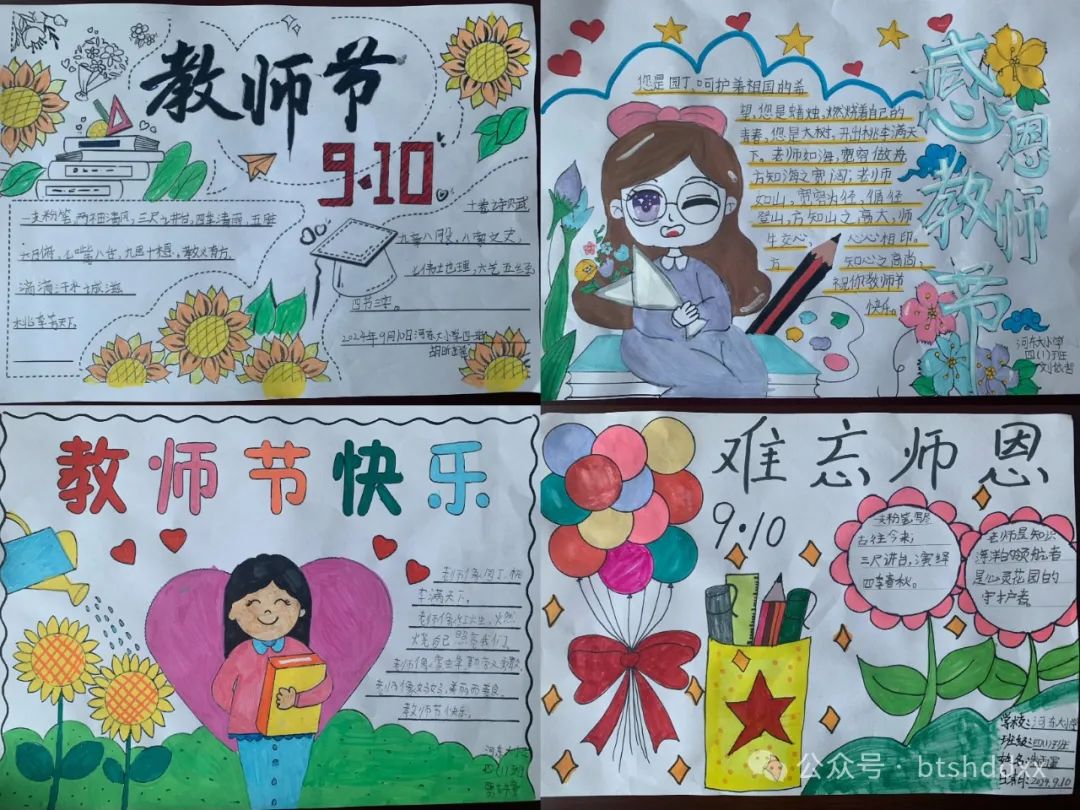 教师节
9.10
一支粉笔,两袖清风,三尺讲台,四季清雨,五脏
六月俯,七嘴八舌,九思十想,教义有方,
滴滴汗水
桃李
九章八月
四节三
2024年9月10日河东大小学四一班
感恩教师节
您是园丁,呵护着祖国的希
望,您是蜡烛,燃烧着自己的
青春,您是大树,开出桃李满天
下。老师如海,宽容做舟,
方知海之宽阔;老师
如山,宽容为径,循径
登山,方知山之高大,师
生交心,心心相印。
方知心之高尚
祝你教师节
快乐。
河东大小学
四(1)班
教师节快乐
老师像园丁,桃
李满天下。
老师像
烧自己照亮我们。
老师像
老师像
教师节快乐。
河东大小学
四(1)班
难忘师恩
9.10
一支粉笔写尽
古往今来;
三尺讲台,演绎
四季春秋。
老师是知识
海洋的领航者
是心灵花园的
守护者。
学校:河东大小学
班级:四(1)班
姓名:
日期:2024.9.10
公众号 · btshddxx